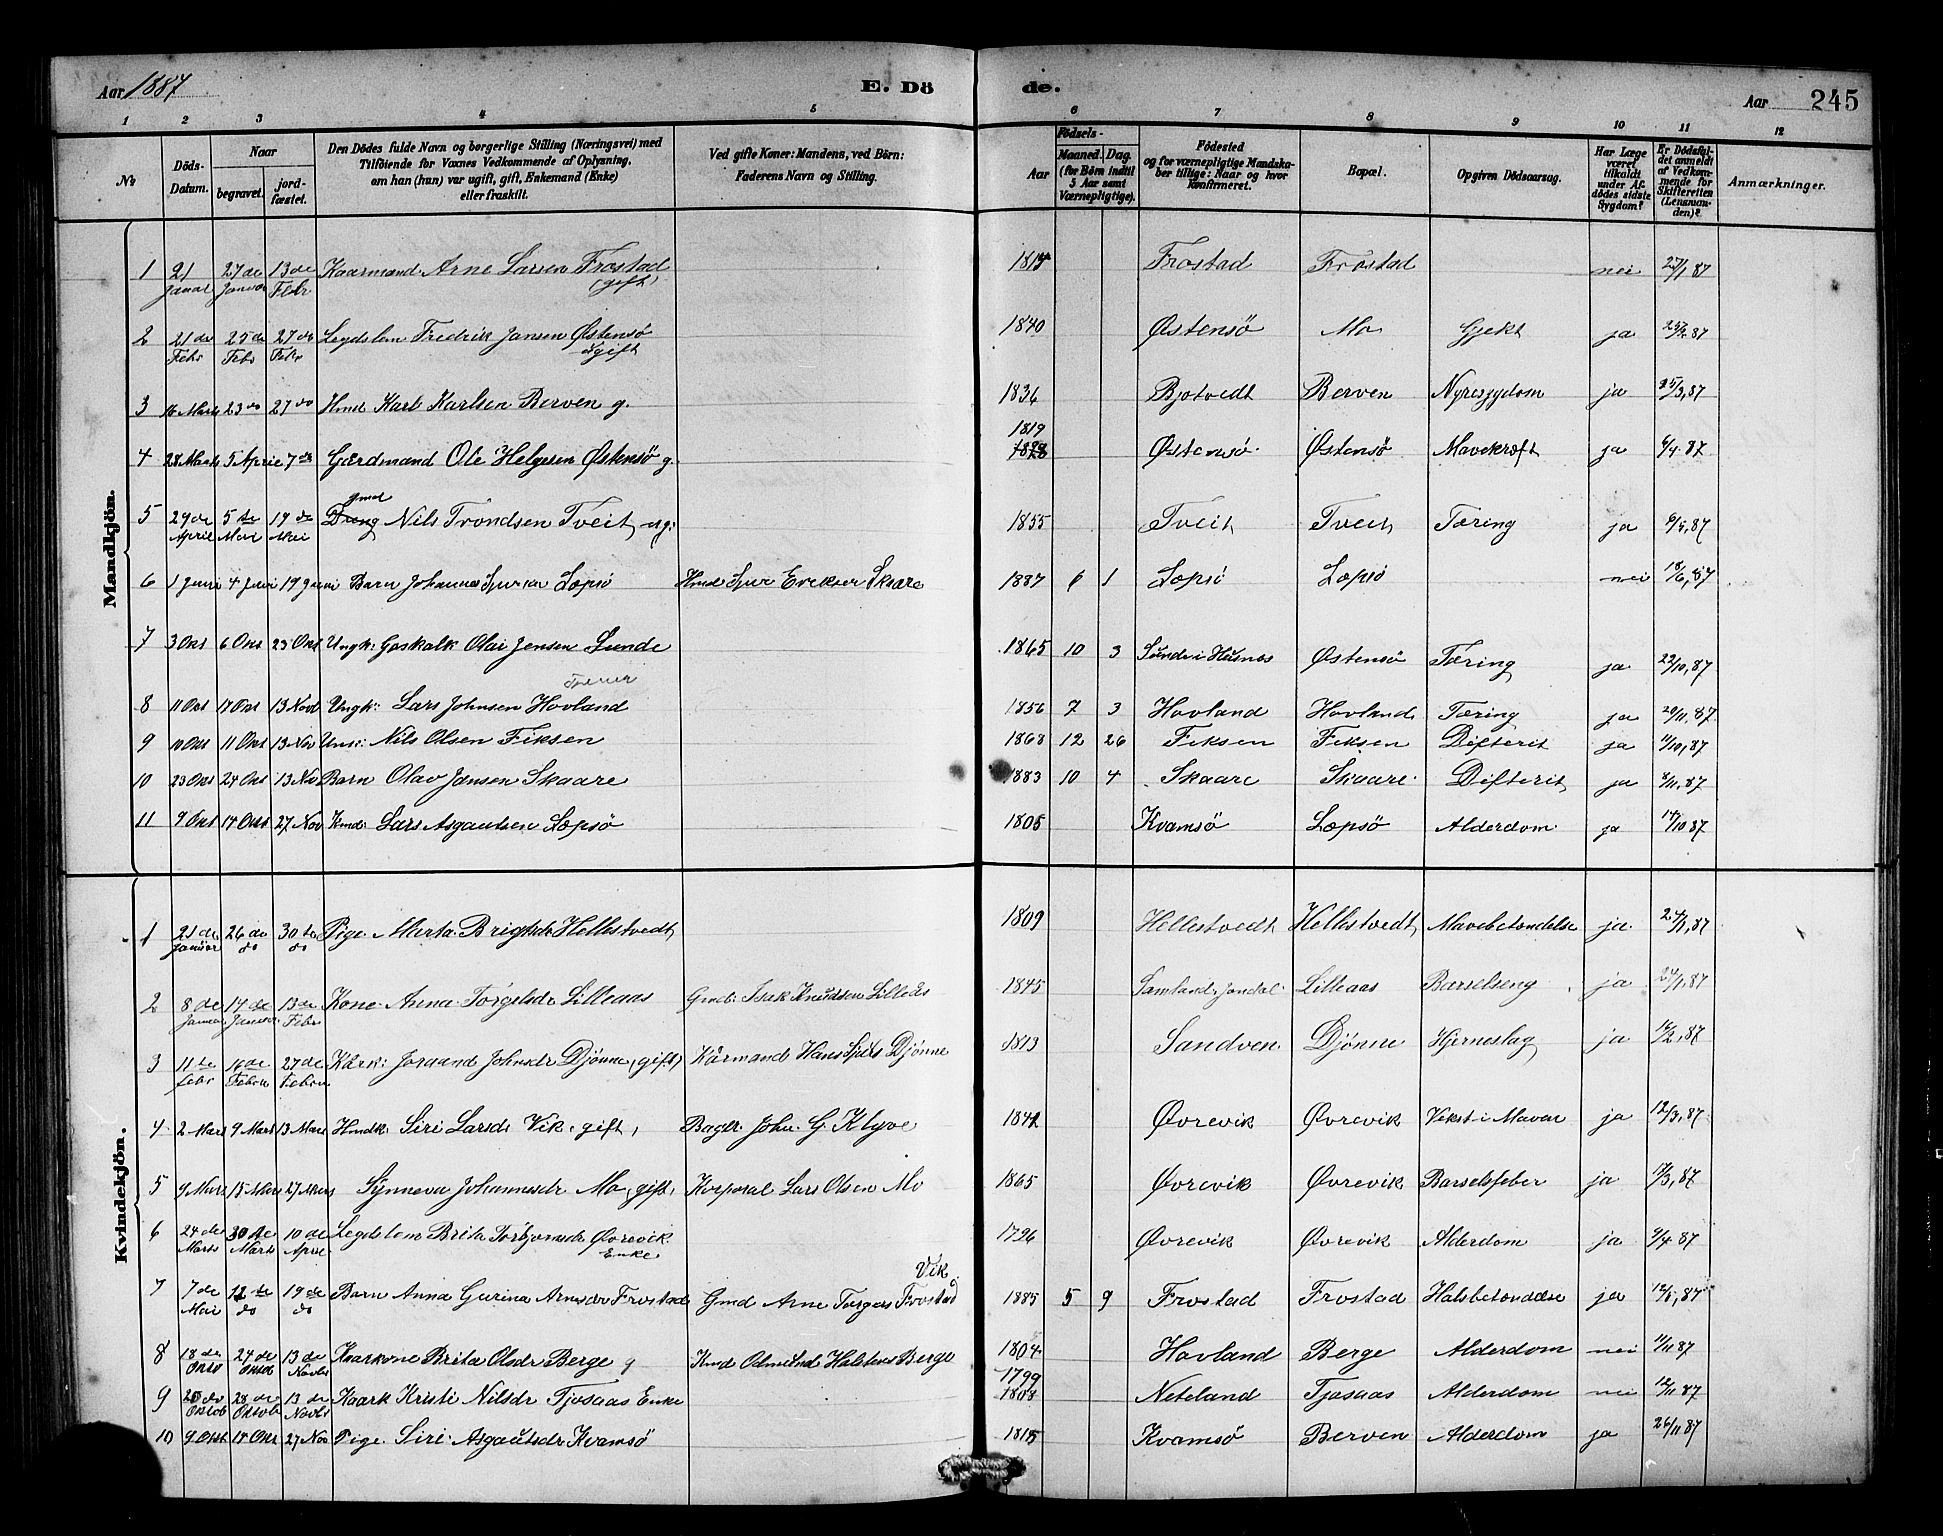 Aar 1887 E. Dö de. Aar 245
1 2 3 4 5 6 7 8 9 10 11 12
№ Döds-Datum. Naar begravet. jord-fæstet. Den Dödes fulde Navn og borgerlige Stilling (Næringsvei) med Tilföiende for Voxnes Vedkommende af Oplysning, om han (hun) var ugift, gift, Enkemand (Enke) eller fraskilt. Ved gifte Koner: Mandens, ved Börn: Faderens Navn og Stilling. Aar Födsels- Maaned. Dag. (for Börn indtil 5 Aar samt Værnepligtige). Födested og for værnepligtige Mandska-ber tillige: Naar og hvor konfirmeret. Bopæl. Opgiven Dödsaarsag. Har Læge været tilkaldt under Af-dödes sidste Sygdom? Er Dödsfal-det anmeldt af Vedkom-mende for Skifteretten (Lensman-den)? Anmærkninger.
Mandkjön.
1 21 Januar 27 de Januar 13 de Febr Kaarmand Arne Larsen Frostad (gift) 1814 Frostad Frostad nei 27/1 87
2 21 de Febr 25 de Febr 27 de Febr Legdslem Fredrik Jansen Østensö gift 1840 Østensö Mo Gjekt ja 25/2 87
3 16 Marts 23 do 27 do Hmd Karl Karlsen Berven g. 1836 Bjotvedt Berven Nyresygdom ja 25/3,87
4 28 Marts 5 April 7 de Gardmand Ole Helgesen Østensö g. 1819 1828 Østensö Østensö Mavekræft ja 6/4 87
5 29 de April 5 te Mai 19 de Mai Dreng gmd Nils Trondsen Tveit ug: 1855 Tveit Tveit Tæring ja 6/5,87
6 1 Juni 4 Juni 19 Juni Barn Johannes Sjursen Lopsö Hmd Sjur Eriksen Skaare 1887 6 1 Lopsö Lopsö nei 18/6,87
7 3 Okt 6 Okt 23 Okt Ungk: Goskalk Olai Jensen Sunde 1865 10 3 Sunde i Husnes Østensö Tæring ja 22/10,87
8 11 Okt 17 Okt 13 Novb Ungk: Lars Johnsen Hovland 1856 7 3 Hovland Hovland Tæring ja 20/11,87
9 10 Okt 11 Okt 13 Nov Unk: Nils Olsen Fiksen 1868 12 26 Fiksen Fiksen Difterit ja 11/10,87
10 23 Okt 24 Okt 13 Nov Barn Olav Jansen Skaare 1883 10 4 Skaare Skaare Difterit ja 8/11,87
11 9 Okt 14 Okt 27 Nov Kmd: Lars Asgautsen Lopsö 1805 Kvamsö Lopsö Alderdom ja 14/10 87
Kvindekjön.
1 21 de Januar 26 de do 30 te do Pige Marta Brigtsdr Hellestvedt 1809 Hellestvedt Hellestvedt Mavebetændelse ja 24/1,87
2 8 de Januar 14 de Januar 13 de Febr Kone Anna Torgilsdr Lilleaas Gmd: Isak Knudsen Lilleås 1845 Samland i Jondal Lilleaas Barselseng ja 24/1,87
3 11 te Febr 16 de Februar 27 de Februar Kårk: Joraand Johnsdr Djönne (gift) Kårmand Hans Sjurs Djönne 1813 Sandven Djönne Hjerneslag ja 16/2,87
4 2 Mars 9 Mars 13 Mars Hmdk: Siri Larsdr Vik gift, Bager John G. Klyve 1842 Øvrevik Øvrevik Vekst i Maven ja 12/3,87
5 9 Mars 15 Mars 27 Mars Synneva Johannesdr Mo, gift, Korporal Lars Olsen Mo 1865 Øvrevik Øvrevik Barselsfeber ja 17/3,87
6 24 de Marts 30 de Marts 10 de April Legdslem Brita Torbjornsdr Øvrevik Enke 1796 Øvrevik Øvrevik Alderdom ja 9/4 87
7 7 de Mai 12 te do 19 de do Barn Anna Gurina Arnesdr Frostad Gmd Arne Torgers Frostad Vik 1885 5 9 Frostad Frostad Halsbetændelse ja 12/5,87
8 18 de Oktb 24 de Oktob 13 de Novbr Kaarkone Brita Olsdr Berge g Kmd Odmund Halstens Berge 1804 Hovland Berge Alderdom nei 11/11 87
9 20 de Oktob 28 de Oktob 13 de Novbr Kaark Kristi Nilsdr Tjosaas Enke 1799 1808 Neteland Tjosaas Alderdom nei 12/11 87
10 9 Okt 14 Okt 27 Nov Pige Siri Asgautsdr Kvamsö 1815 Kvamsö Berven Alderdom ja 26/11 87